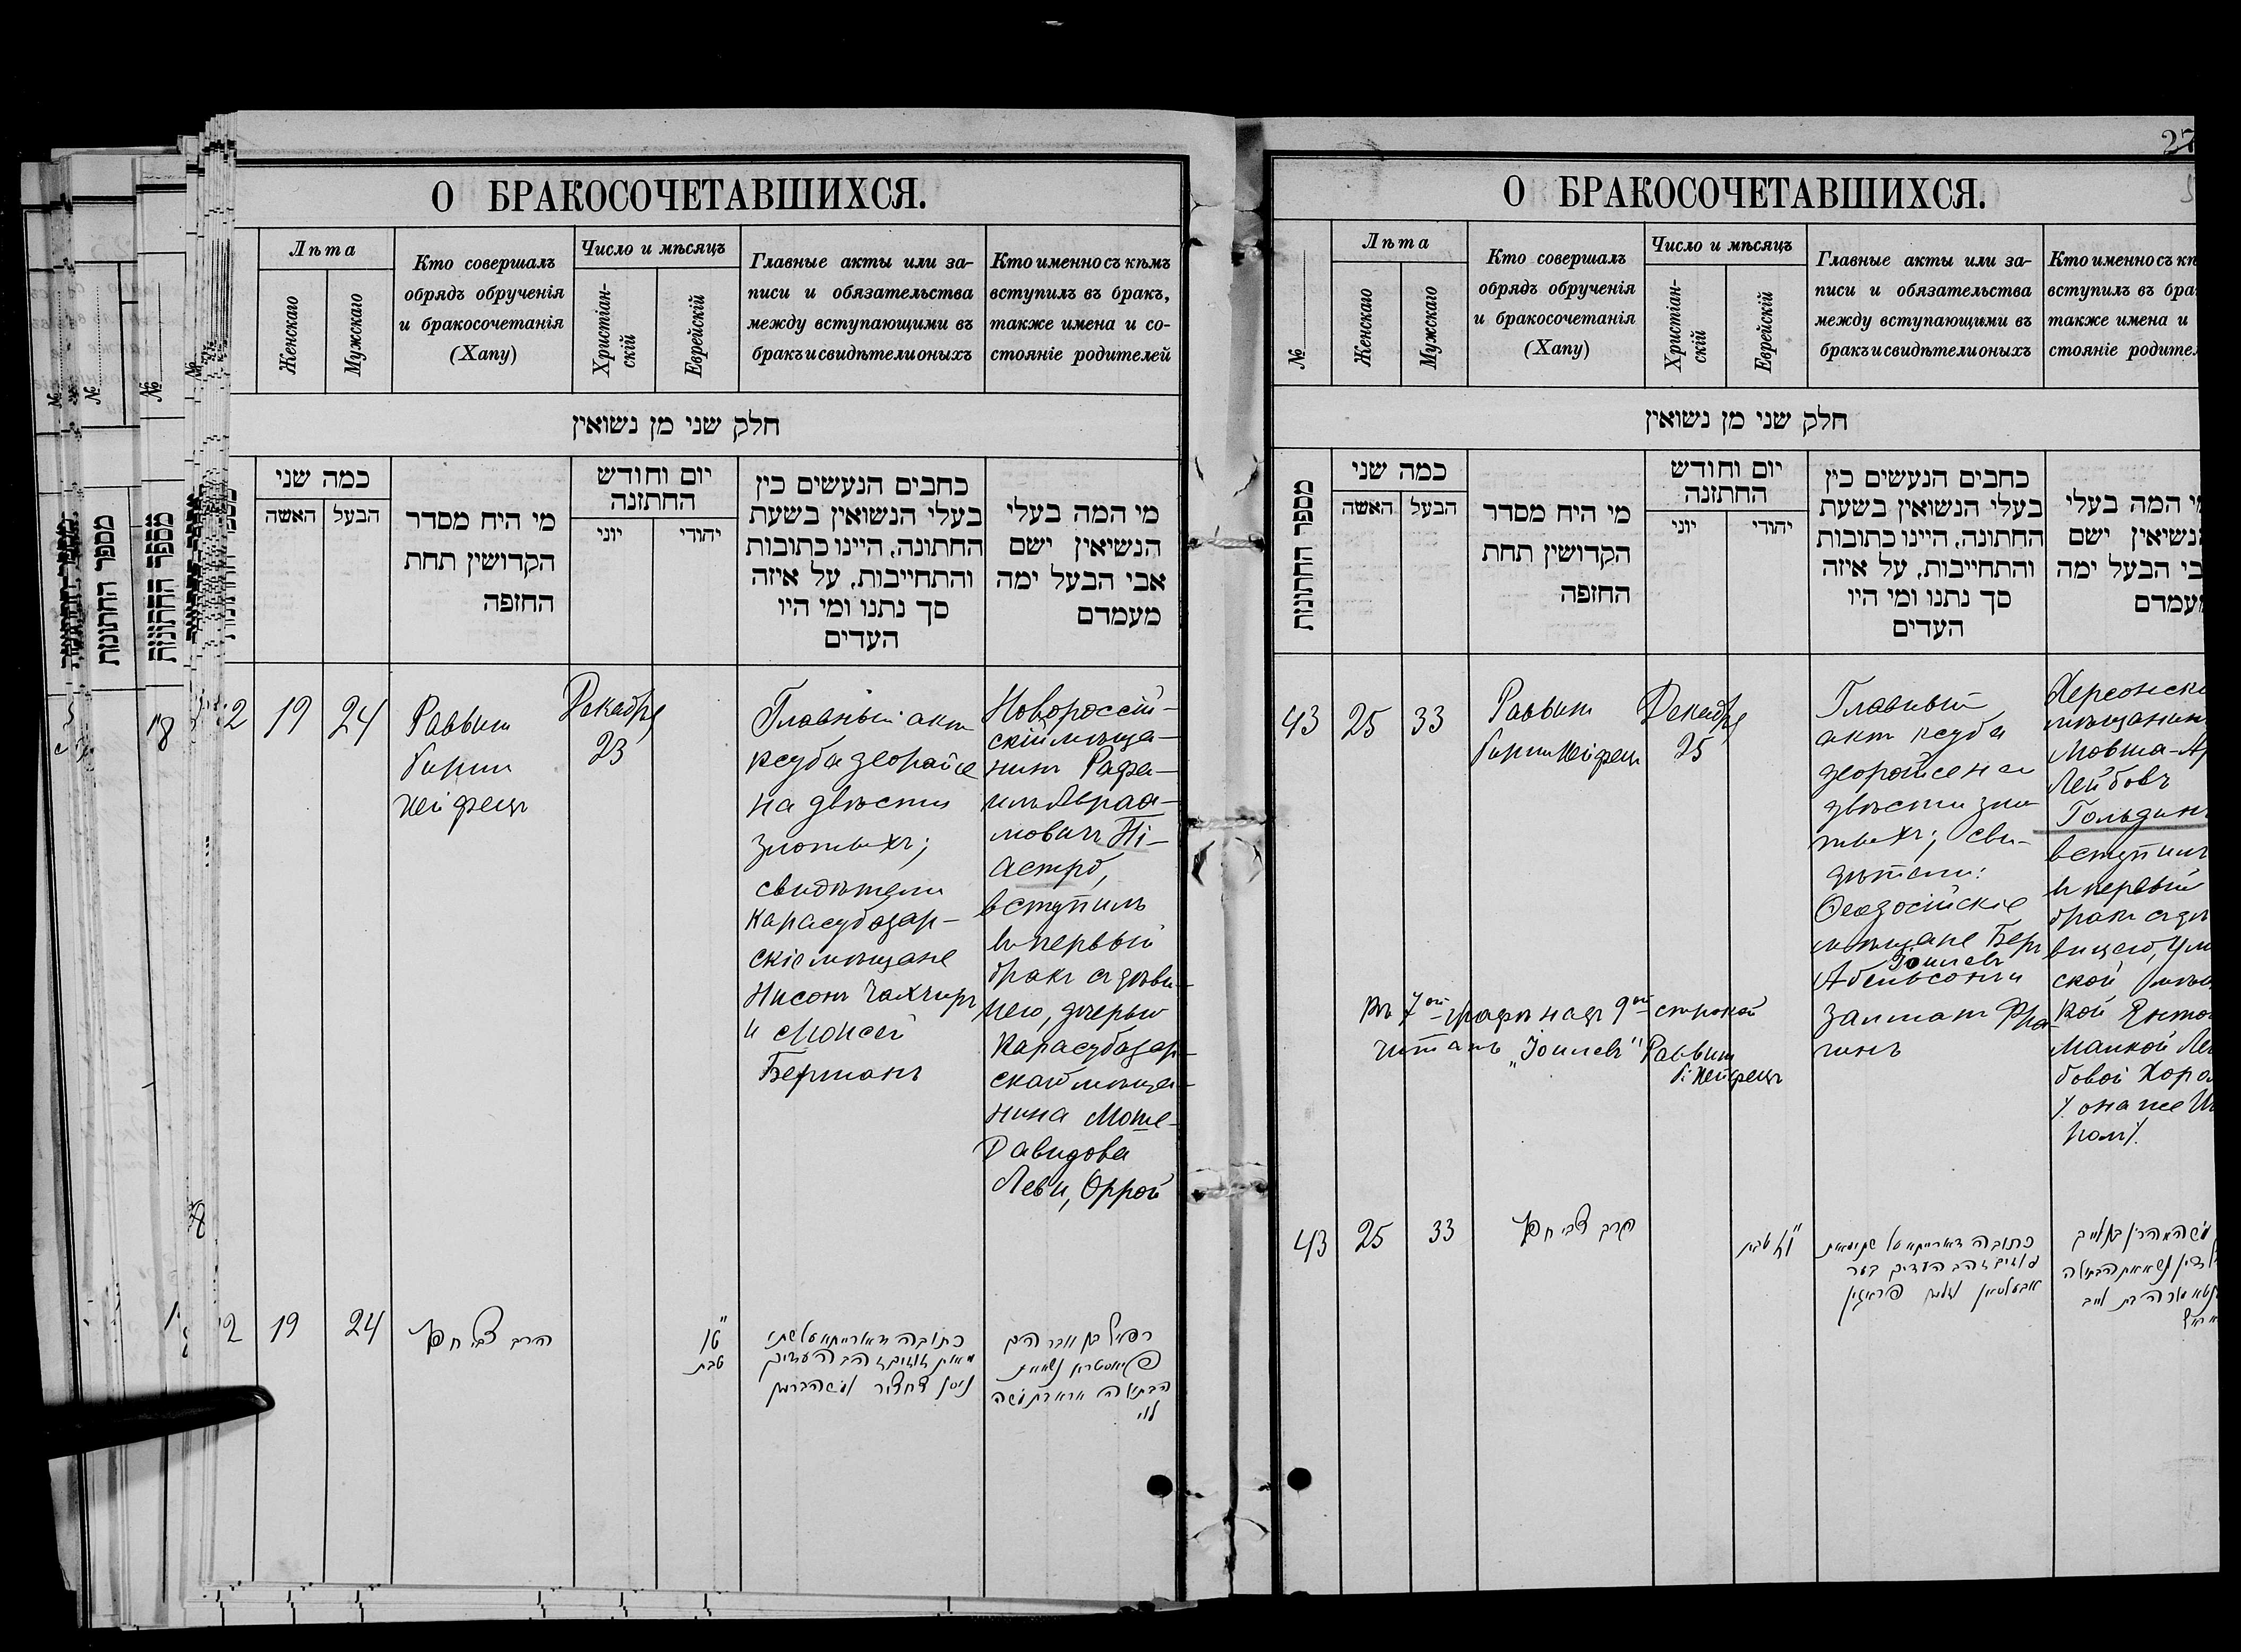 О БРАКОСОЧЕТАВШИХСЯ.
Лѣта
Женскаго
Мужскаго
Кто совершалъ
обрядъ обрученія
и бракосочетанія
(Хапу)
Число и мѣсяцъ
Христіан-
скій
Еврейскій
Главные акты или за-
писи и обязательства
между вступающими въ
бракъ и свидѣтели оныхъ
Кто именно съ кѣмъ
вступилъ въ бракъ,
также имена и со-
стояніе родителей
חלק שני מן נשואין
כמה שני
האשה
הבעל
מי היח מסדר
הקדושין תחת
החזפה
יום וחודש
החתזנה
יוני
יהודי
כחבים הנעשים כין
בעלי הנשואין בשעת
החתונה, היינו כתובות
והתחייבות, על איזה
סך נתנו ומי היו
העדים
מי המה בעלי
הנשיאין ישם
אבי הבעל ימה
מעמדם
2
19
24
Раввинъ
Гирш
Хейфецъ
Декабря
23
Главный актъ
ксуба деорайсе
на двѣсти
злотыхъ;
свидѣтели
Карасубазар-
скіе мѣщане
Нисонъ Чахчиръ
и Моисей
Берманъ
Новороссій-
скій мѣща-
нинъ Рафа-
илъ Авраа-
мовичъ Пі-
астро,
вступилъ
въ первый
бракъ съ дѣви-
цею, дочерью
Карасубазар-
скаго мѣща-
нина Моше-
Давидова
Леви, Оррой
2
19
24
הרב צבי חפץ
ט"ו
טבת
כתובה דאורייתא על שתי
מאות זוזים זהב העדים
ניסן צחציר ומשה ברמן
רפאל בן אברהים
פיאסטרא נשא את
הבתולה אורא בת משה
לוי
27
О БРАКОСОЧЕТАВШИХСЯ.
№
Лѣта
Женскаго
Мужскаго
Кто совершалъ
обрядъ обрученія
и бракосочетанія
(Хапу)
Число и мѣсяцъ
Христіан-
скій
Еврейскій
Главные акты или за-
писи и обязательства
между вступающими въ
бракъ и свидѣтели оныхъ
Кто именно съ кѣ
вступилъ въ бра
также имена и
стояніе родител
חלק שני מן נשואין
מספר החתונות
כמה שני
האשה
הבעל
מי היח מסדר
הקדושין תחת
החזפה
יום וחודש
החתזנה
יוני
יהודי
כחבים הנעשים כין
בעלי הנשואין בשעת
החתונה, היינו כתובות
והתחייבות, על איזה
סך נתנו ומי היו
העדים
מי המה בעלי
נשיאין ישם
בי הבעל ימה
מעמדם
43
25
33
Раввинъ
Гирш Хейфецъ
Декабря
25
Главный
актъ ксуба
деорайсе на
двѣсти зло-
тыхъ; сви-
дѣтели:
Ѳеодосійскіе
мѣщане Беръ
Іоилевъ
Абельсонъ и
Залманъ Фра-
гинъ
Херсонскі
мѣщанинъ
Мовша-А
Лейбовъ
Гольдинъ
вступилъ
въ первый
бракъ съ дѣ
вицею,
ской мѣщ
кой
Малкой Лей
бовой
/: она же
Въ 7ой графѣ надъ 9ой строкой
читать „Іоилевъ" Раввинъ
Г. Хейфецъ
43
25
33
הרב צבי חפץ
טבת
כתובה דאורייתא על שתי מאות
זוזים זהב העדים בער
אבעלסאן וזלמן פראגין
בן לייב
נשא את הבתולה
בת לייב